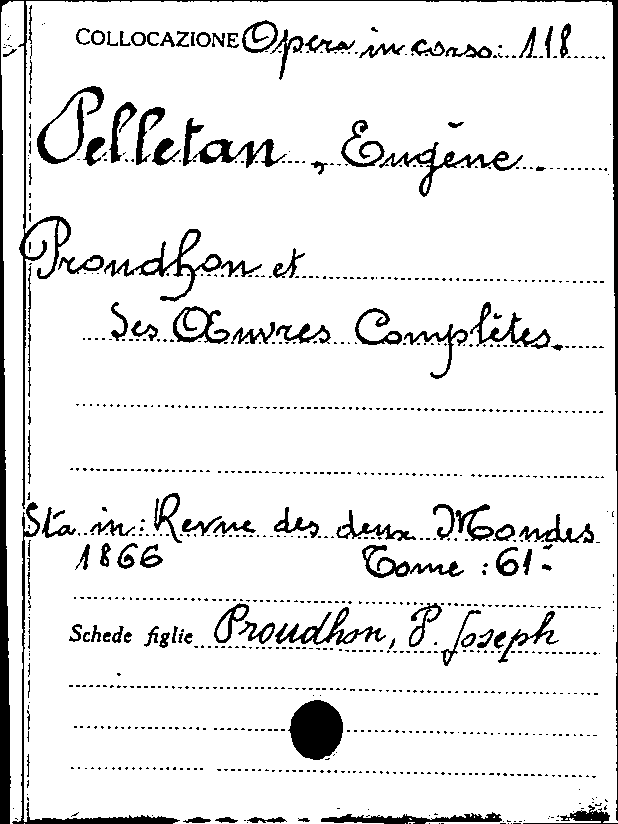 COLLOCAZIONE Opera in corso: 118
Pelletan, Eugène.
Proudhon et
ses Œuvres Complètes.
Sta in: Revue des deux Mondes
1866 Tome: 61-
Schede figlie Proudhon, P. Joseph